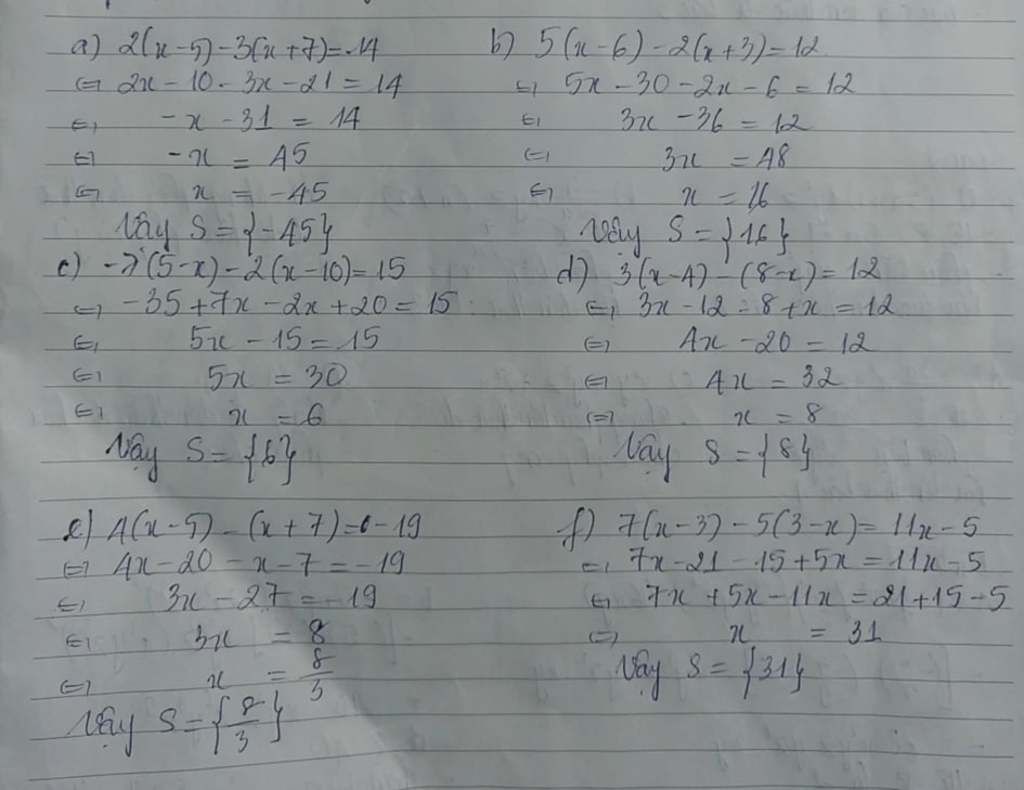 a) 2(x-5)-3(x+7)=14
⇔ 2x-10-3x-21=14
⇔ -x-31=14
⇔ -x=45
⇔ x=-45
Vậy S={-45}
b) 5(x-6)-2(x+3)=12
⇔ 5x-30-2x-6=12
⇔ 3x-36=12
⇔ 3x=48
⇔ x=16
Vậy S={16}
c) -7(5-x)-2(x-10)=15
⇔ -35+7x-2x+20=15
⇔ 5x-15=15
⇔ 5x=30
⇔ x=6
Vậy S={6}
d) 3(x-4)-(8-x)=12
⇔ 3x-12-8+x=12
⇔ 4x-20=12
⇔ 4x=32
⇔ x=8
Vậy S={8}
e) 4(x-5)-(x+7)=-19
⇔ 4x-20-x-7=-19
⇔ 3x-27=-19
⇔ 3x=8
⇔ x=8/3
Vậy S={8/3}
f) 7(x-3)-5(3-x)=11x-5
⇔ 7x-21-15+5x=11x-5
⇔ 7x+5x-11x=21+15-5
⇔ x=31
Vậy S={31}